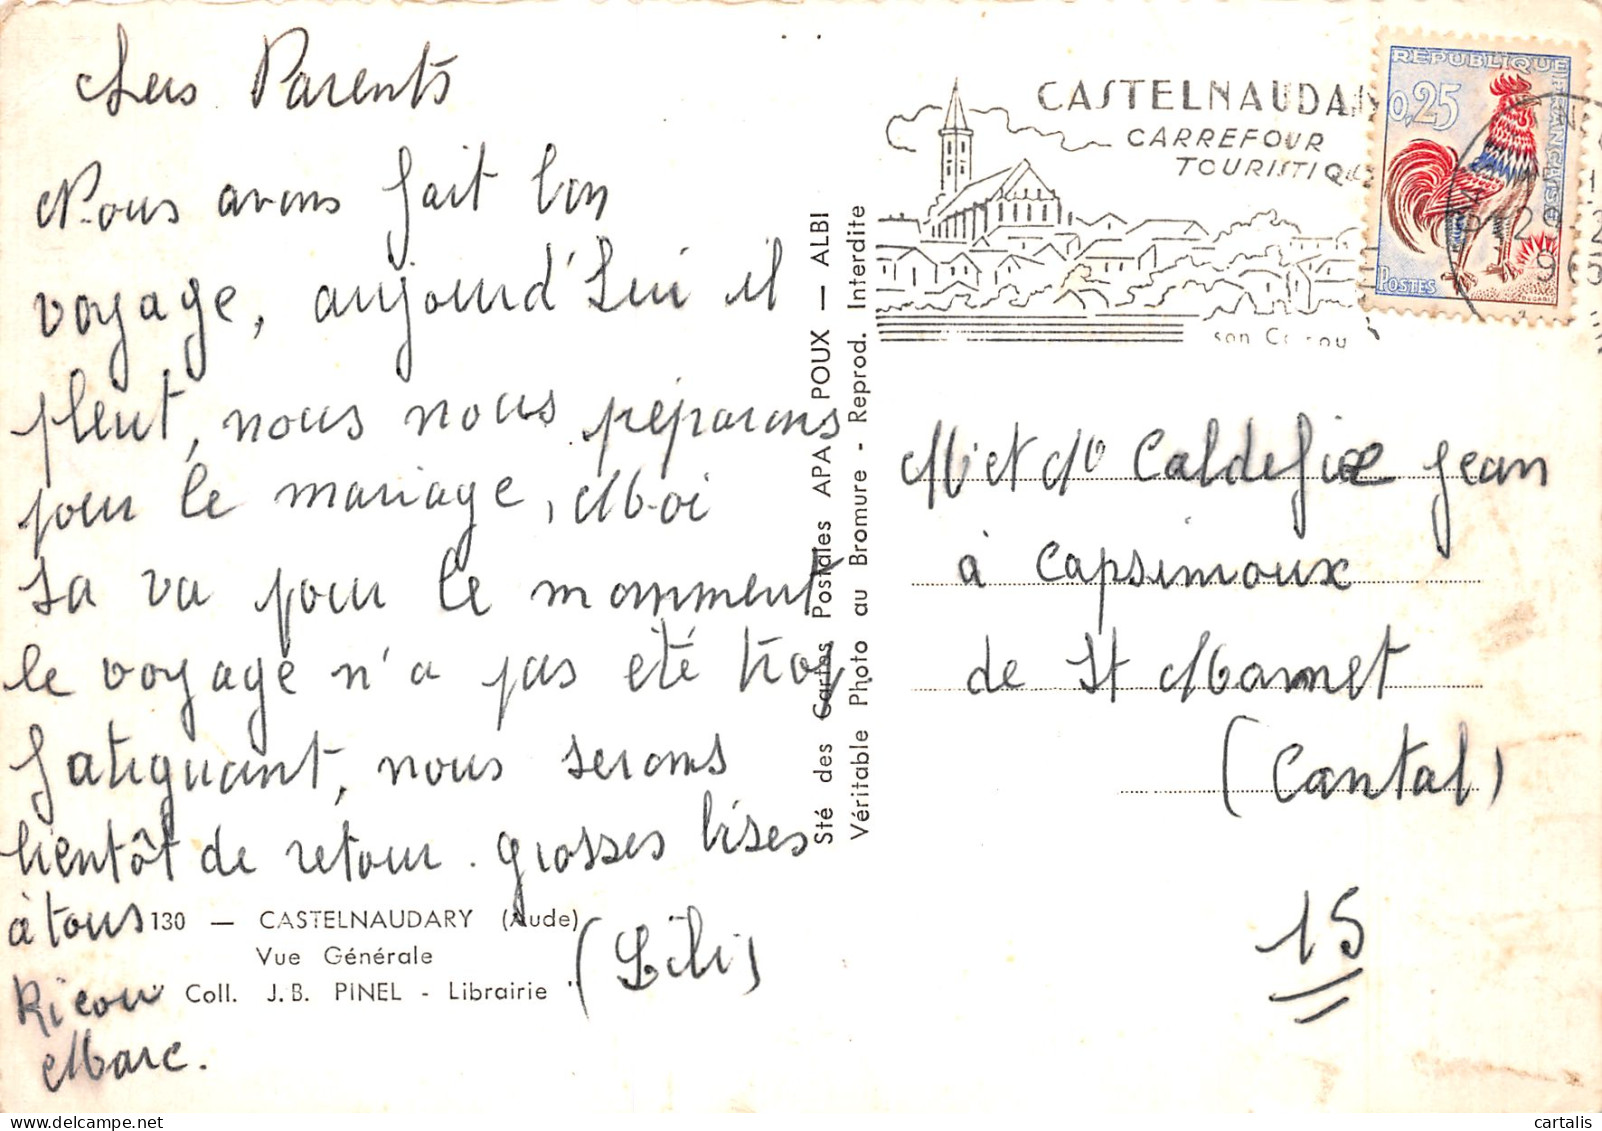 Chers Parents
Nous avons fait bon
voyage, aujourd'hui il
pleut, nous nous préparons
pour le mariage, Moi
sa va pour le momment
le voyage n'a pas été trop
fatiguant, nous serons
bientôt de retour. grosses bises
à tous
(Lili)
Ricou
Marc.
130 — CASTELNAUDARY (Aude)
Vue Générale
Coll. J. B. PINEL - Librairie
Sté des Cartes Postales APA POUX — ALBI
Véritable Photo au Bromure - Reprod. Interdite
CASTELNAUDARY
CARREFOUR
TOURISTIQUE
son
REPUBLIQUE FRANÇAISE
0,25
POSTES
Mr et Me Caldefie Jean
à Capsimoux
de St Mamet
(Cantal)
15
delcampe.net
cartalis